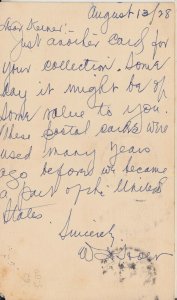 August 13/28
Dear Verner:-
Just another card for
your collection. Some
day it might be of
some value to you.
These postal cards were
used many years
ago before we became
a part of the United
States.
Sincerely